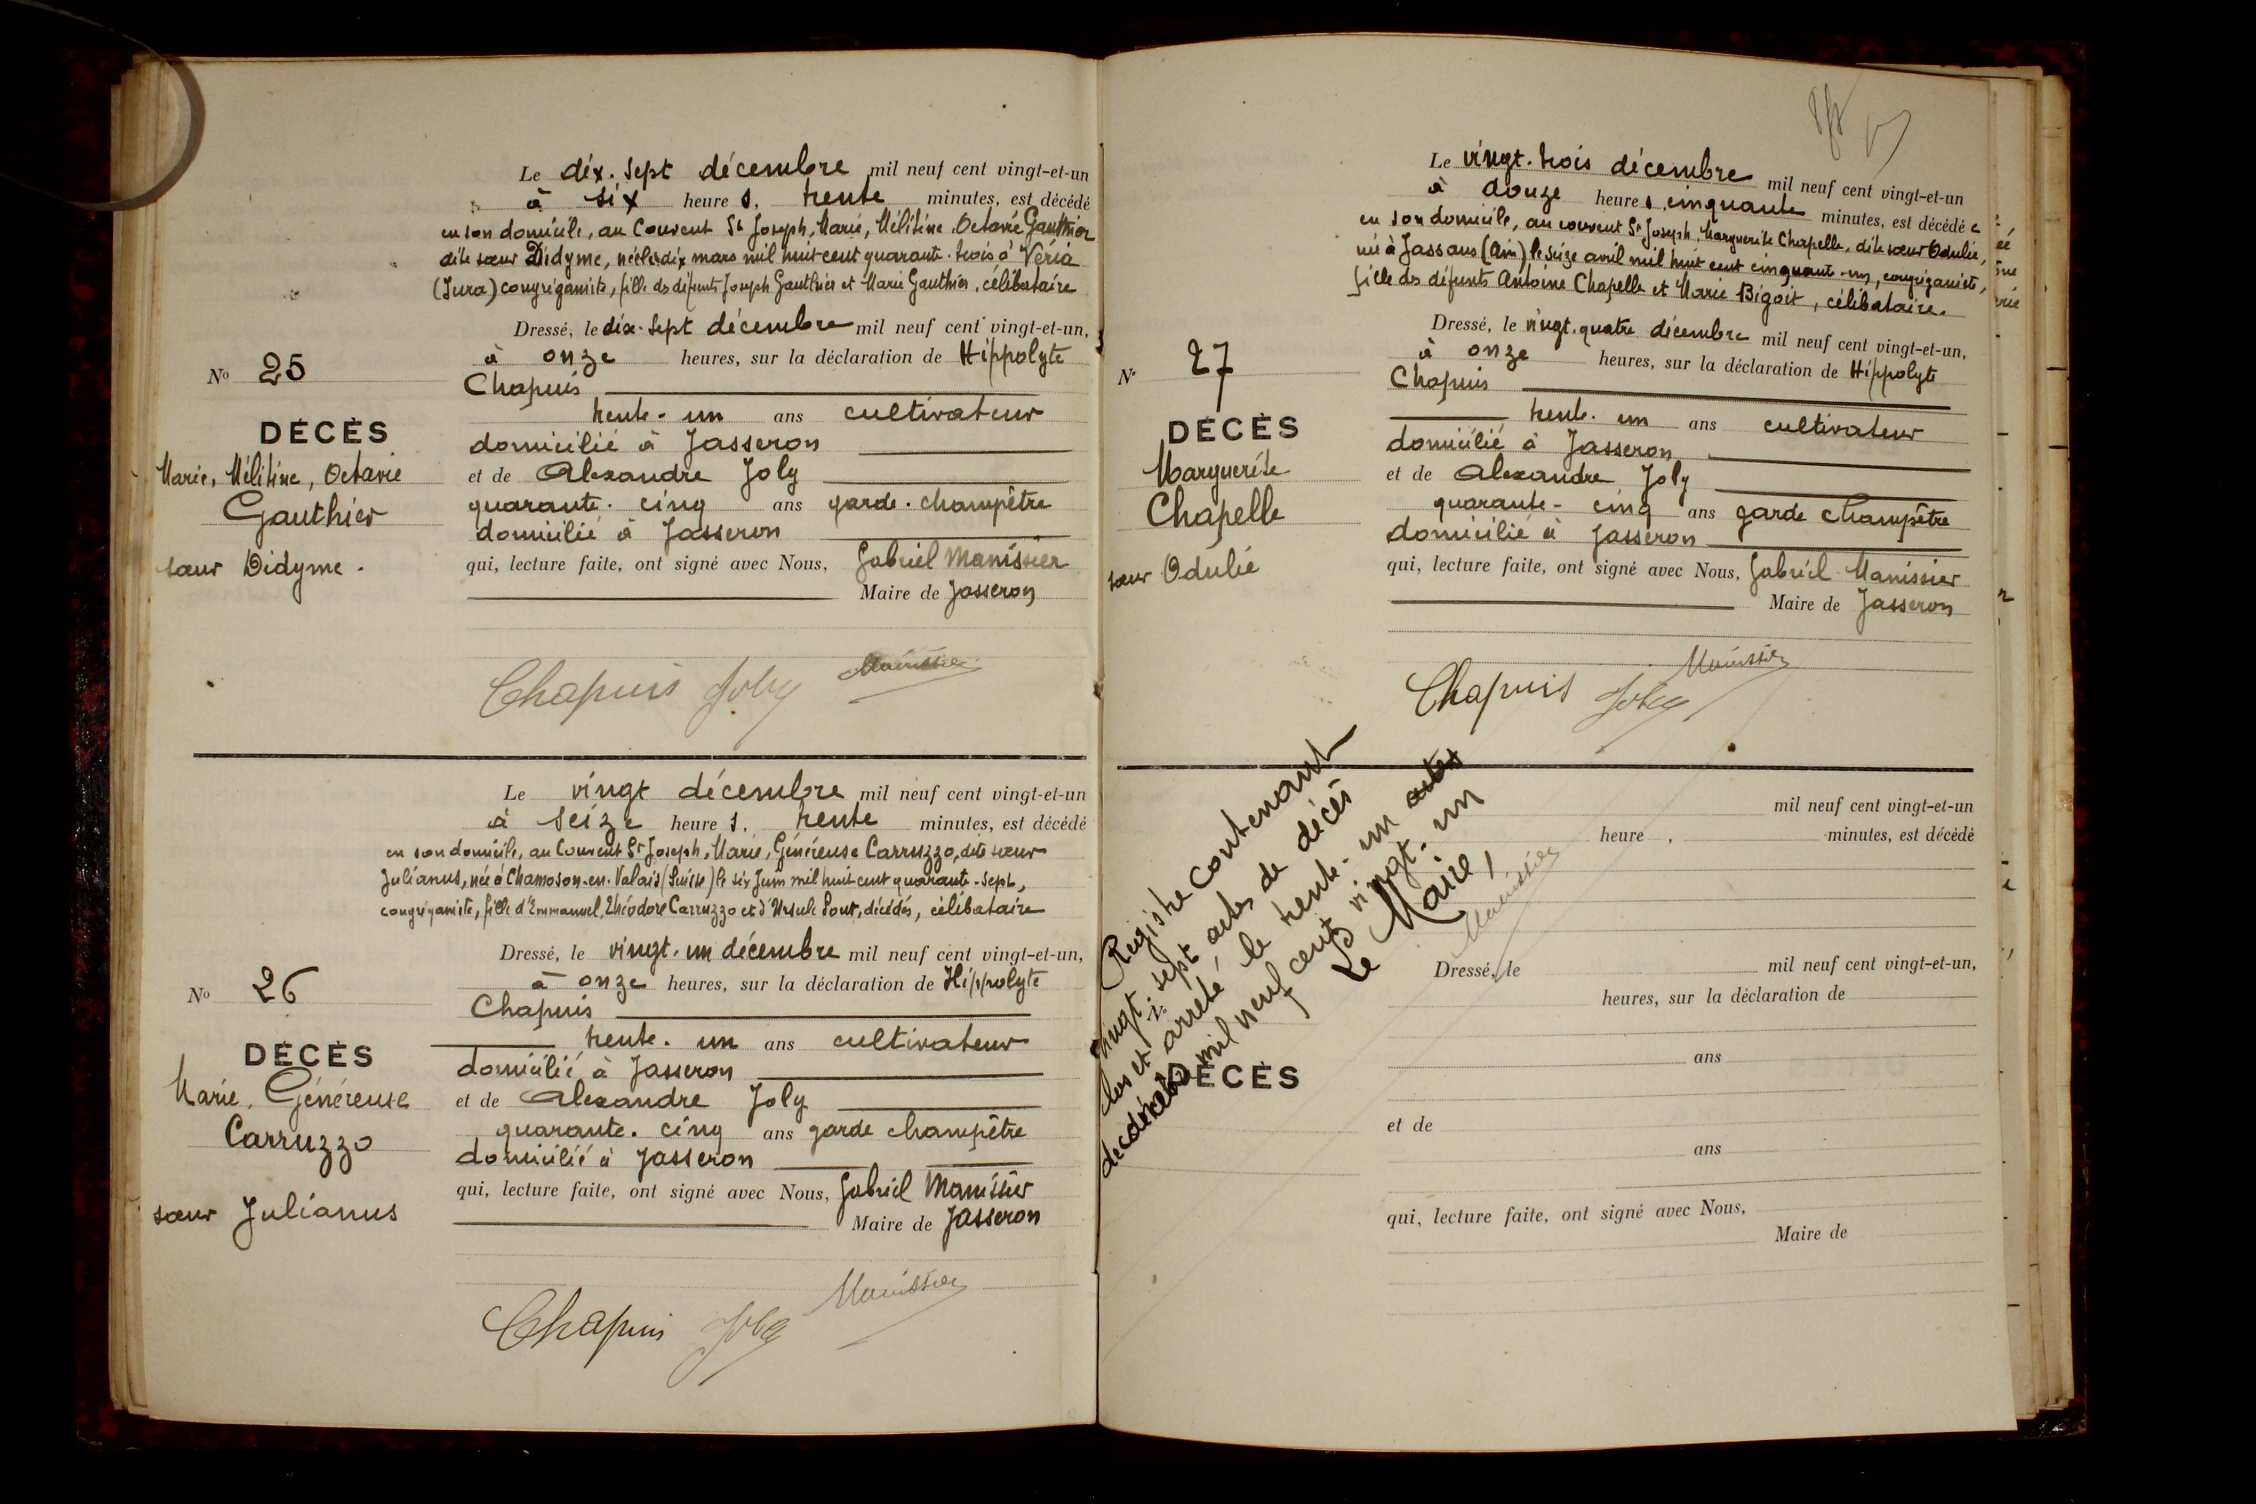 Le dix-sept décembre mil neuf cent vingt-et-un
à six heures, trente minutes, est décédé
en son domicile, au Couvent St Joseph, Marie, Mélitine, Octavie Gauthier
dite sœur Didyme, née le dix mars mil huit cent quarante-trois à Véria
(Jura) congréganiste, fille des défunts Joseph Gauthier et Marie Gauthier, célibataire
Dressé, le dix-sept décembre mil neuf cent vingt-et-un,
à onze heures, sur la déclaration de Hippolyte
Chapuis
trente-un ans cultivateur
domicilié à Jasseron
et de Alexandre Joly
quarante-cinq ans garde-champêtre
domicilié à Jasseron
qui, lecture faite, ont signé avec Nous, Gabriel Manissier
Maire de Jasseron
Chapuis Joly Manissier
No 25
DÉCÈS
Marie, Mélitine, Octavie
Gauthier
sœur Didyme.
Le vingt décembre mil neuf cent vingt-et-un
à seize heures, trente minutes, est décédé
en son domicile, au Couvent St Joseph, Marie, Généreuse Carruzzo, dite sœur
Julianus, née à Chamoson-en-Valais (Suisse) le six Juin mil huit cent quarante-sept,
congréganiste, fille d'Emmanuel, Théodore Carruzzo et d'Ursule Pont, décédés, célibataire
Dressé, le vingt-un décembre mil neuf cent vingt-et-un,
à onze heures, sur la déclaration de Hippolyte
Chapuis
trente-un ans cultivateur
domicilié à Jasseron
et de Alexandre Joly
quarante-cinq ans garde champêtre
domicilié à Jasseron
qui, lecture faite, ont signé avec Nous, Gabriel Manissier
Maire de Jasseron
Chapuis Joly Manissier
No 26
DÉCÈS
Marie, Généreuse
Carruzzo
sœur Julianus
Le vingt-trois décembre mil neuf cent vingt-et-un
à douze heures, cinquante minutes, est décédée
en son domicile, au couvent St Joseph, Marguerite Chapelle, dite sœur Odulie,
née à Jassans (Ain) le seize avril mil huit cent cinquante-un, congréganiste,
fille des défunts Antoine Chapelle et Marie Bigoit, célibataire.
Dressé, le vingt-quatre décembre mil neuf cent vingt-et-un,
à onze heures, sur la déclaration de Hippolyte
Chapuis
trente-un ans cultivateur
domicilié à Jasseron
et de Alexandre Joly
quarante-cinq ans garde champêtre
domicilié à Jasseron
qui, lecture faite, ont signé avec Nous, Gabriel Manissier
Maire de Jasseron
Chapuis Joly Manissier
No 27
DÉCÈS
Marguerite
Chapelle
sœur Odulie
Registre contenant
vingt-sept actes de décès
clos et arrêté, le trente-un
décembre mil neuf cent vingt-un
Le Maire,
Manissier
mil neuf cent vingt-et-un
heure , minutes, est décédé
Dressé, le mil neuf cent vingt-et-un,
heures, sur la déclaration de
ans
et de
ans
qui, lecture faite, ont signé avec Nous,
Maire de
DÉCÈS